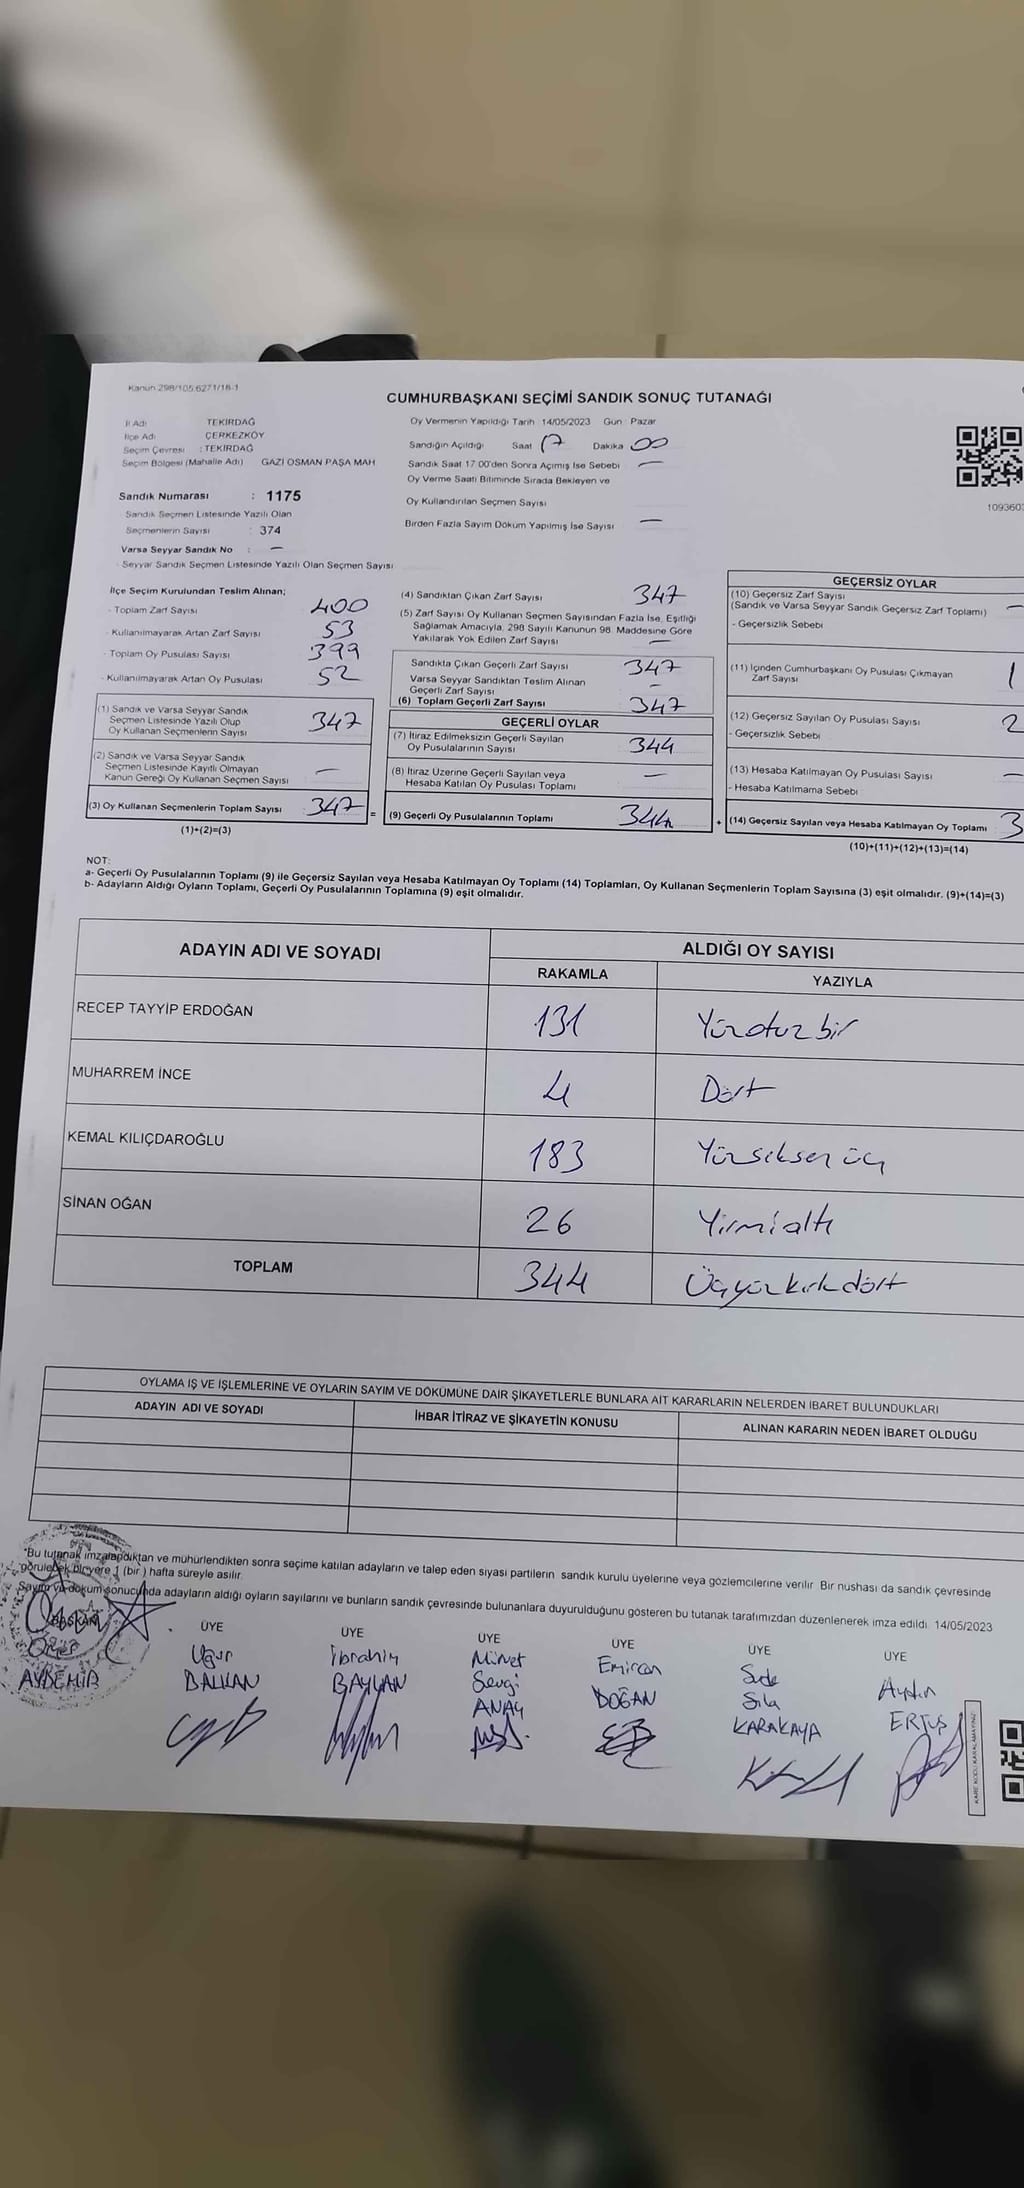 Kanun 298/105 6271/18-1
CUMHURBAŞKANI SEÇİMİ SANDIK SONUÇ TUTANAĞI
İl Adı TEKİRDAĞ
İlçe Adı ÇERKEZKÖY
Seçim Çevresi : TEKİRDAĞ
Seçim Bölgesi (Mahalle Adı) GAZİ OSMAN PAŞA MAH
Sandık Numarası : 1175
Sandık Seçmen Listesinde Yazılı Olan
Seçmenlerin Sayısı : 374
Varsa Seyyar Sandık No : —
- Seyyar Sandık Seçmen Listesinde Yazılı Olan Seçmen Sayısı
Oy Vermenin Yapıldığı Tarih 14/05/2023 Gün : Pazar
Sandığın Açıldığı Saat 17 Dakika 00
Sandık Saat 17 00'den Sonra Açımış İse Sebebi —
Oy Verme Saati Bitiminde Sırada Bekleyen ve
Oy Kullandırılan Seçmen Sayısı
Birden Fazla Sayım Döküm Yapılmış İse Sayısı —
1093603
İlçe Seçim Kurulundan Teslim Alınan;
- Toplam Zarf Sayısı 400
- Kullanılmayarak Artan Zarf Sayısı 53
- Toplam Oy Pusulası Sayısı 399
- Kullanılmayarak Artan Oy Pusulası 52
(1) Sandık ve Varsa Seyyar Sandık
Seçmen Listesinde Yazılı Olup
Oy Kullanan Seçmenlerin Sayısı 347
(2) Sandık ve Varsa Seyyar Sandık
Seçmen Listesinde Kayıtlı Olmayan
Kanun Gereği Oy Kullanan Seçmen Sayısı —
(3) Oy Kullanan Seçmenlerin Toplam Sayısı 347 =
(1)+(2)=(3)
(4) Sandıktan Çıkan Zarf Sayısı 347
(5) Zarf Sayısı Oy Kullanan Seçmen Sayısından Fazla İse, Eşitliği
Sağlamak Amacıyla, 298 Sayılı Kanunun 98. Maddesine Göre
Yakılarak Yok Edilen Zarf Sayısı —
Sandıkta Çıkan Geçerli Zarf Sayısı 347
Varsa Seyyar Sandıktan Teslim Alınan
Geçerli Zarf Sayısı —
(6) Toplam Geçerli Zarf Sayısı 347
GEÇERLİ OYLAR
(7) İtiraz Edilmeksizin Geçerli Sayılan
Oy Pusulalarının Sayısı 344
(8) İtiraz Üzerine Geçerli Sayılan veya
Hesaba Katılan Oy Pusulası Toplamı —
(9) Geçerli Oy Pusulalarının Toplamı 344 +
GEÇERSİZ OYLAR
(10) Geçersiz Zarf Sayısı
(Sandık ve Varsa Seyyar Sandık Geçersiz Zarf Toplamı) —
- Geçersizlik Sebebi
(11) İçinden Cumhurbaşkanı Oy Pusulası Çıkmayan
Zarf Sayısı 1
(12) Geçersiz Sayılan Oy Pusulası Sayısı 2
- Geçersizlik Sebebi
(13) Hesaba Katılmayan Oy Pusulası Sayısı —
- Hesaba Katılmama Sebebi
(14) Geçersiz Sayılan veya Hesaba Katılmayan Oy Toplamı 3
(10)+(11)+(12)+(13)=(14)
NOT:
a- Geçerli Oy Pusulalarının Toplamı (9) ile Geçersiz Sayılan veya Hesaba Katılmayan Oy Toplamı (14) Toplamları, Oy Kullanan Seçmenlerin Toplam Sayısına (3) eşit olmalıdır. (9)+(14)=(3)
b- Adayların Aldığı Oyların Toplamı, Geçerli Oy Pusulalarının Toplamına (9) eşit olmalıdır.
ADAYIN ADI VE SOYADI ALDIĞI OY SAYISI
RAKAMLA YAZIYLA
RECEP TAYYİP ERDOĞAN 131 Yüzotuzbir
MUHARREM İNCE 4 Dört
KEMAL KILIÇDAROĞLU 183 Yüzseksen üç
SİNAN OĞAN 26 Yirmialtı
TOPLAM 344 Üçyüzkırkdört
OYLAMA İŞ VE İŞLEMLERİNE VE OYLARIN SAYIM VE DÖKÜMÜNE DAİR ŞİKAYETLERLE BUNLARA AİT KARARLARIN NELERDEN İBARET BULUNDUKLARI
ADAYIN ADI VE SOYADI İHBAR İTİRAZ VE ŞİKAYETİN KONUSU ALINAN KARARIN NEDEN İBARET OLDUĞU
"Bu tutanak imzalandıktan ve mühürlendikten sonra seçime katılan adayların ve talep eden siyasi partilerin sandık kurulu üyelerine veya gözlemcilerine verilir Bir nushası da sandık çevresinde
görülecek bir yere 1 (bir ) hafta süreyle asılır.
Sayım ve döküm sonucunda adayların aldığı oyların sayılarını ve bunların sandık çevresinde bulunanlara duyurulduğunu gösteren bu tutanak tarafımızdan düzenlenerek imza edildi 14/05/2023
BAŞKAN ÜYE ÜYE ÜYE ÜYE ÜYE ÜYE
Ömer Uğur İbrahim Mürvet Emircan Sude Aydın
AYDEMİR BALKAN BAYLAN Sevgi DOĞAN Sıla ERTUŞ
ANAY KARAKAYA
KARE KODU KARALAMAYINIZ